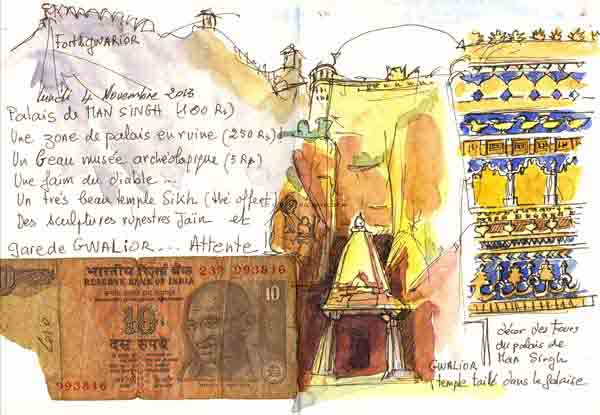 Fort de GWALIOR
Lundi 4 Novembre 2013
Palais de MAN SINGH (100 Rs)
Une zone de palais en ruine (250 Rs)
Un beau musée archéologique (5 Rs)
Une faim du diable ...
Un très beau temple Sikh (thé offert)
Des sculptures rupestres Jaïn et
gare de GWALIOR ... Attente !
भारतीय रिज़र्व बैंक
RESERVE BANK OF INDIA
23? 993816
10
10
दस रुपये
993816
décor des tours
du palais de
Man Singh
GWALIOR
temple taillé dans la falaise